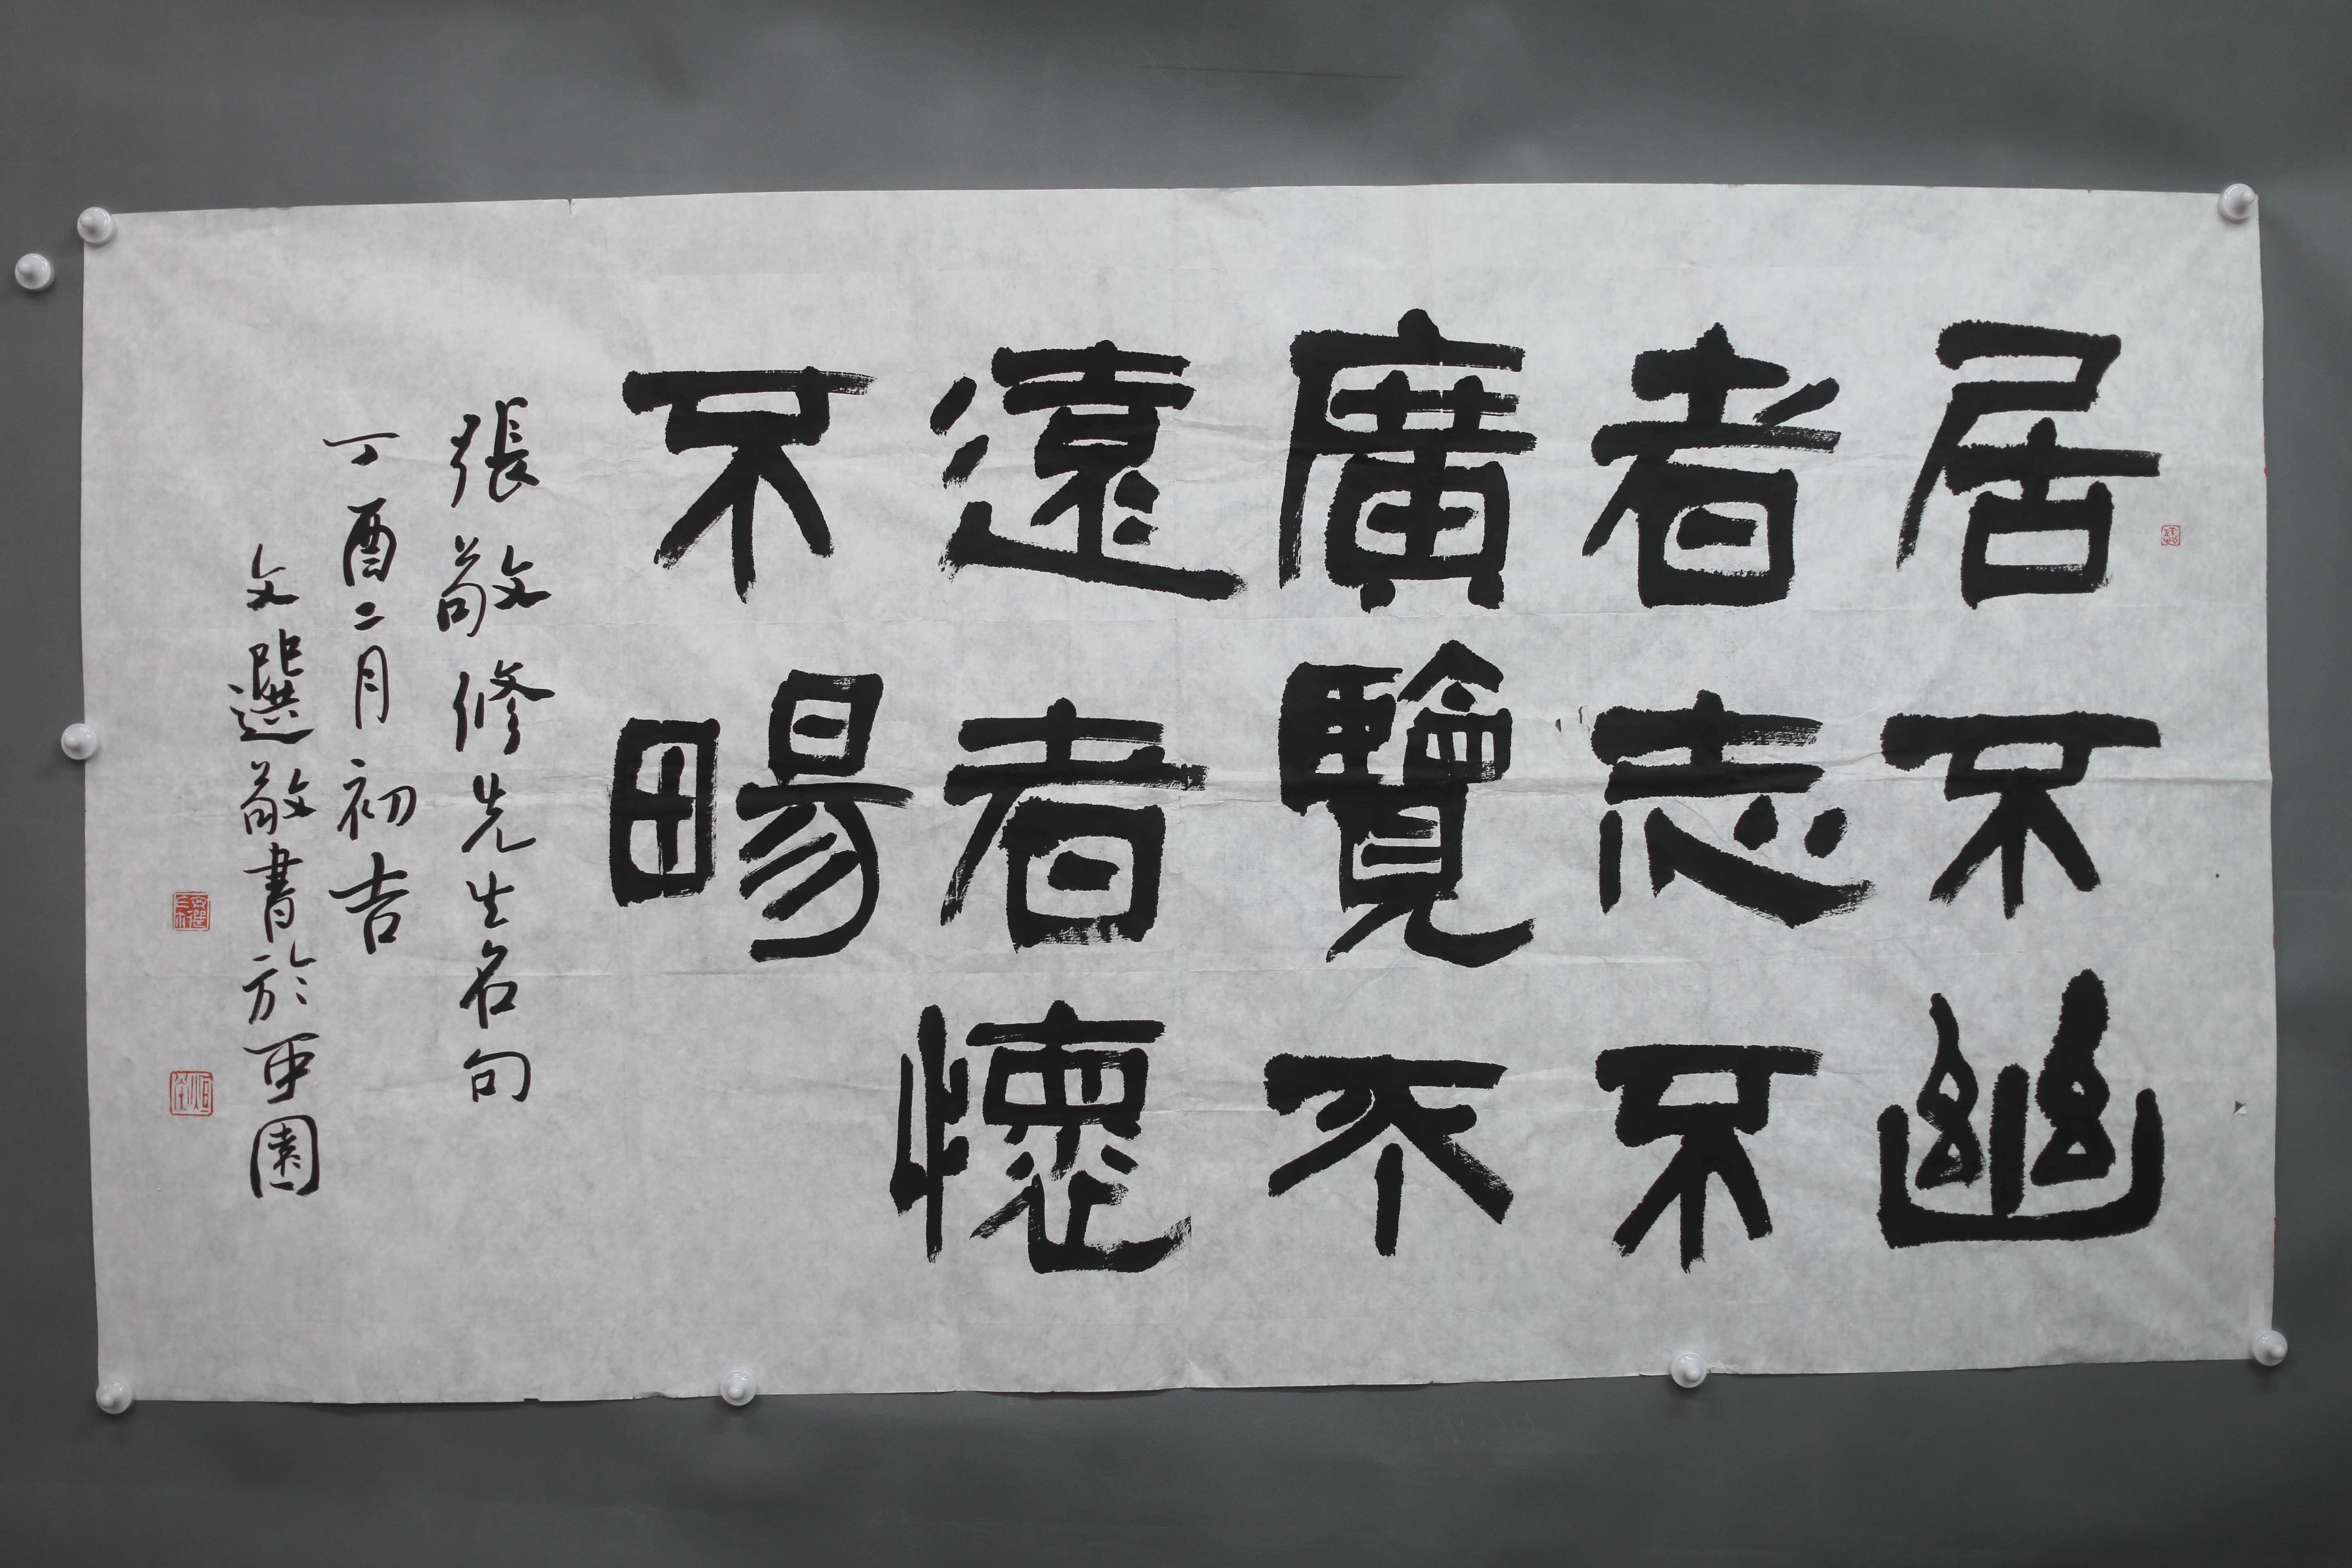 居不幽
者志不
廣覽不
遠者懷
不暢
張敬修先生名句
丁酉二月初吉
文選敬書於可園